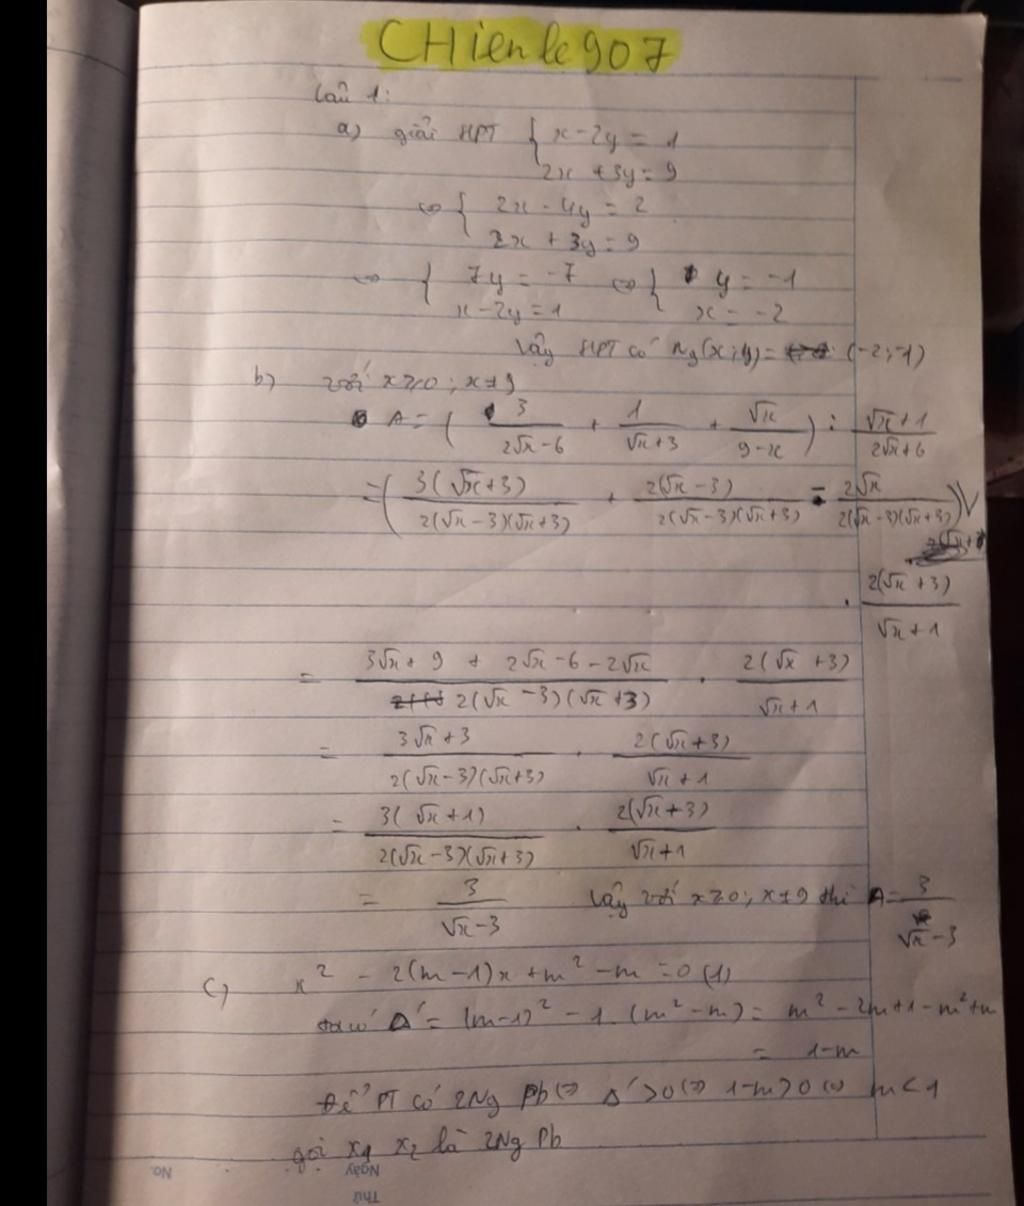 CHien le 907
Câu 1:
a) giải HPT { x - 2y = 1
2x + 3y = 9
<=> { 2x - 4y = 2
2x + 3y = 9
<=> { 7y = -7 <=> { y = -1
x - 2y = 1 x = -2
Vậy HPT có Ng (x;y) = (-2;-1)
b) với x ≥ 0 ; x ≠ 9
A = ( 3/(2√x - 6) + 1/(√x + 3) + √x/(9 - x) ) : (√x + 1)/(2√x + 6)
= ( 3(√x + 3)/(2(√x - 3)(√x + 3)) + 2(√x - 3)/(2(√x - 3)(√x + 3)) - 2√x/(2(√x - 3)(√x + 3)) )
. 2(√x + 3)/(√x + 1)
= (3√x + 9 + 2√x - 6 - 2√x)/(2(√x - 3)(√x + 3)) . 2(√x + 3)/(√x + 1)
= (3√x + 3)/(2(√x - 3)(√x + 3)) . 2(√x + 3)/(√x + 1)
= 3(√x + 1)/(2(√x - 3)(√x + 3)) . 2(√x + 3)/(√x + 1)
= 3/(√x - 3) Vậy với x ≥ 0 ; x ≠ 9 thì A = 3/(√x - 3)
c) x² - 2(m - 1)x + m² - m = 0 (1)
ta có Δ' = (m-1)² - 1.(m² - m) = m² - 2m + 1 - m² + m
= 1 - m
Để PT có 2Ng Pb <=> Δ' > 0 <=> 1 - m > 0 <=> m < 1
gọi x₁ x₂ là 2Ng Pb
No.
Ngày
Thứ